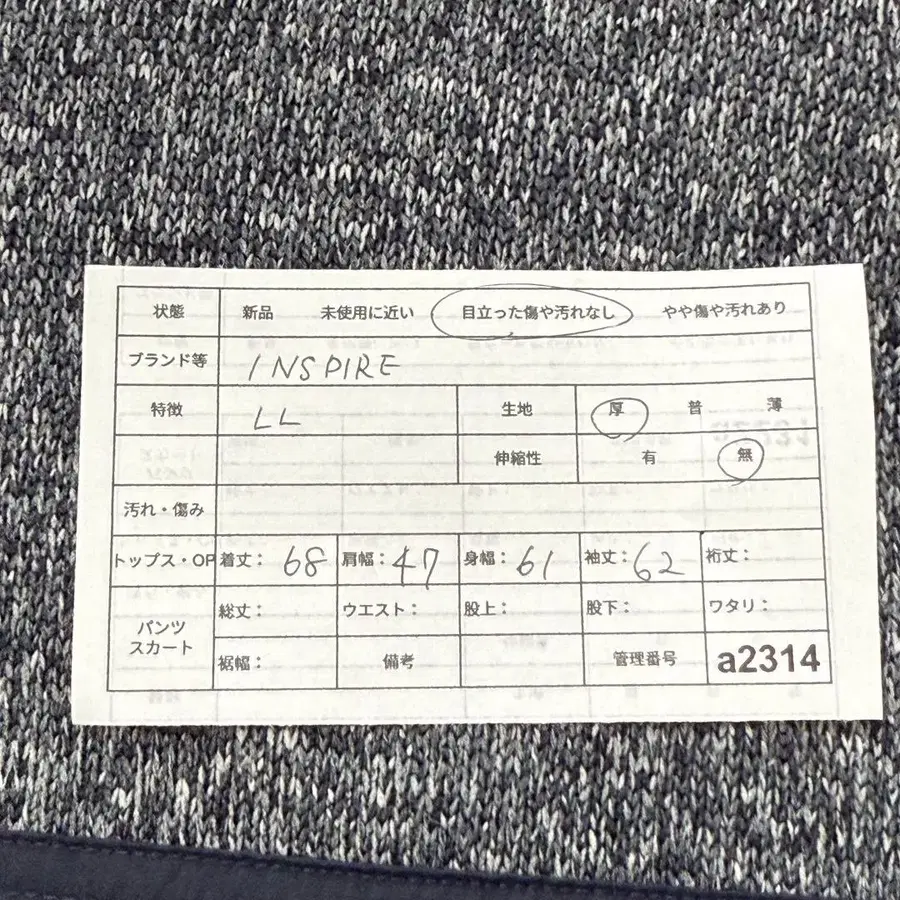 状態 新品 未使用に近い 目立った傷や汚れなし やや傷や汚れあり
ブランド等 INSPIRE
特徴 LL 生地 厚 普 薄
伸縮性 有 無
汚れ・傷み
トップス・OP 着丈: 68 肩幅: 47 身幅: 61 袖丈: 62 裄丈:
パンツ スカート 総丈: ウエスト: 股上: 股下: ワタリ:
裾幅: 備考 管理番号 a2314